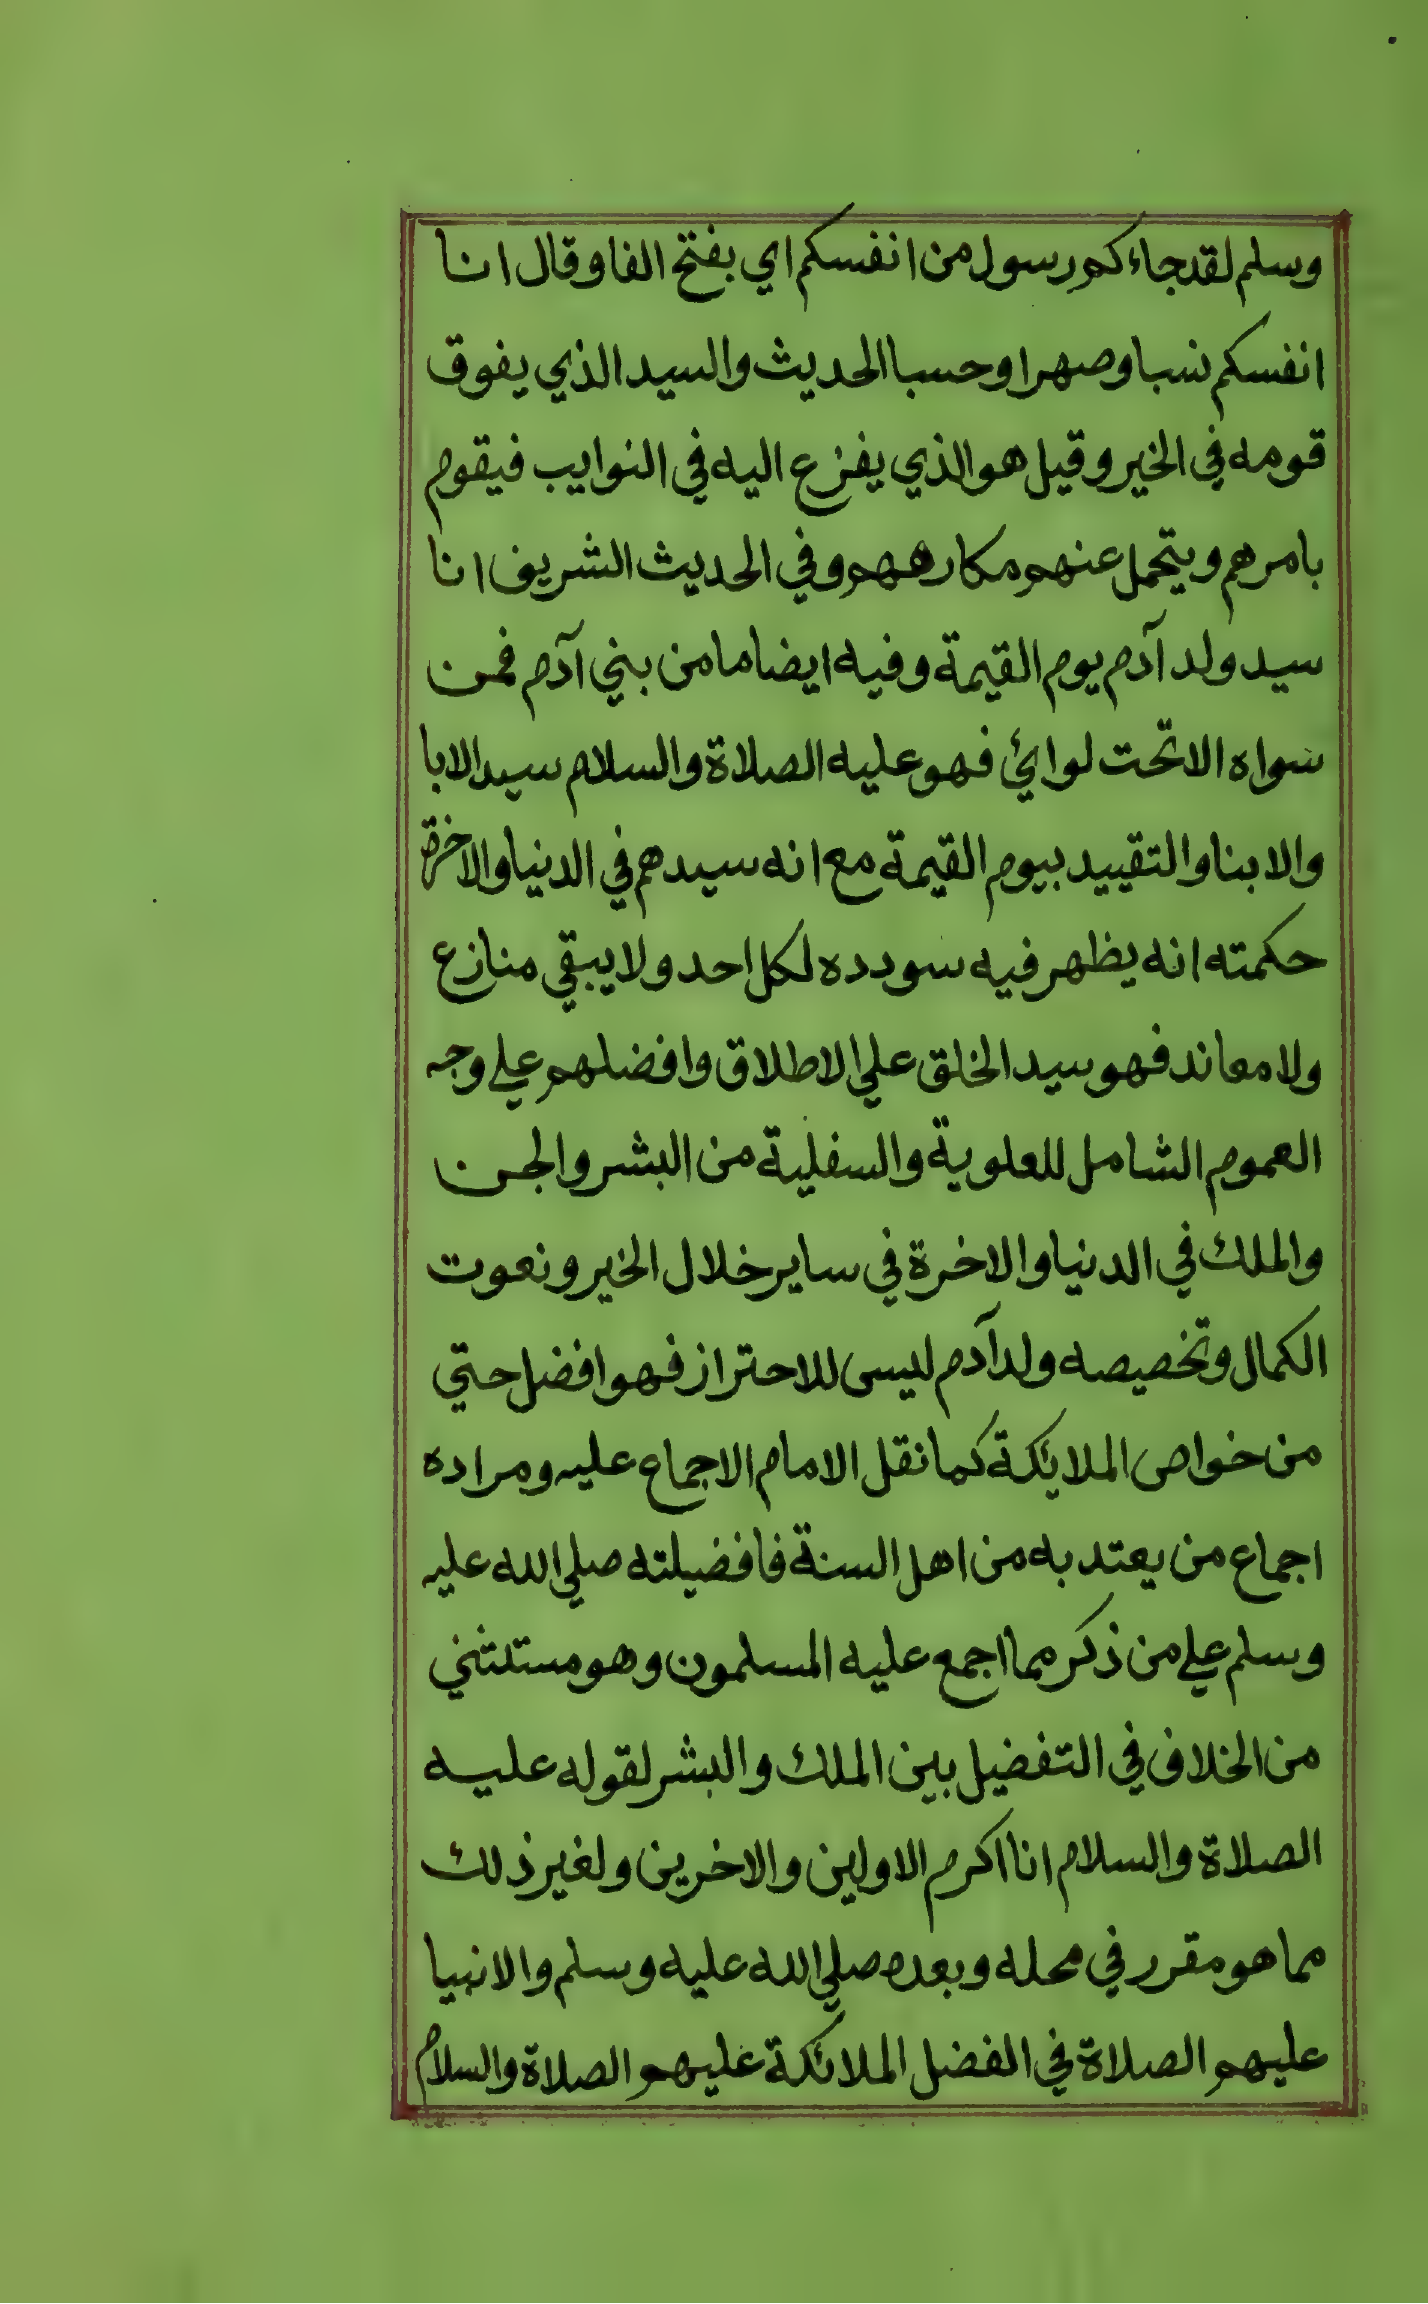 وسلم لقد جاءكم رسول من انفسكم اي بفتح الفا وقال انا
انفسكم نسبا وصهرا وحسبا الحديث والسيد الذي يفوق
قومه في الخير وقيل هو الذي يفزع اليه في النوايب فيقوم
بامرهم ويتحمل عنهم مكارههم وفي الحديث الشريف انا
سيد ولد آدم يوم القيمة وفيه ايضا ما من بني آدم فمن
سواه الا تحت لوائ فهو عليه الصلاة والسلام سيد الابا
والابنا والتقييد بيوم القيمة مع انه سيدهم في الدنيا والاخرة
حكمته انه يظهر فيه سودده لكل احد ولا يبقي منازع
ولا معاند فهو سيد الخلق علي الاطلاق وافضلهم علي وجه
العموم الشامل للعلوية والسفلية من البشر والجن
والملك في الدنيا والاخرة في ساير خلال الخير ونعوت
الكمال وتخصيصه ولد آدم ليس للاحتراز فهو افضل حتي
من خواص الملائكة كما نقل الامام الاجماع عليه ومراده
اجماع من يعتد به من اهل السنة فافضيلته صلي الله عليه
وسلم علي من ذكر مما اجمع عليه المسلمون وهو مستثني
من الخلاف في التفضيل بين الملك والبشر لقوله عليه
الصلاة والسلام انا اكرم الاولين والاخرين ولغير ذلك
مما هو مقرر في محله وبعده صلي الله عليه وسلم والانبيا
عليهم الصلاة في الفضل الملائكة عليهم الصلاة والسلام